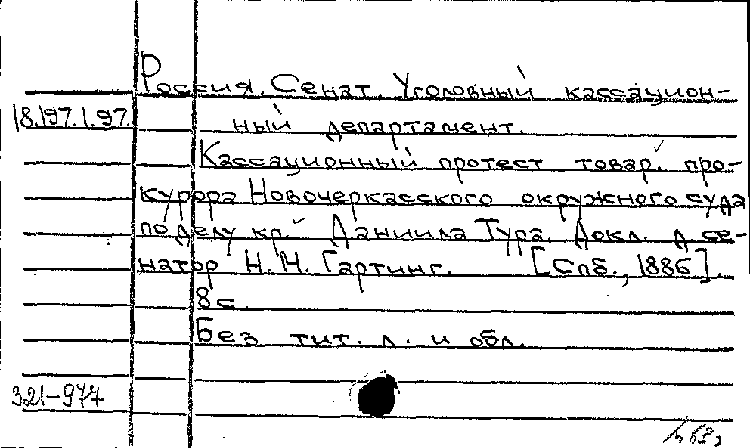 Россия. Сенат. Уголовный кассацион-
18.197.1.97. ный департамент.
Кассационный протест товар. про-
курора Новочеркасского окружного суда
по делу кр. Даниила Тура. Докл. д. се-
натор Н. Н. Гартинг. [Спб., 1886].
8 с.
Без тит. л. и обл.
321-977